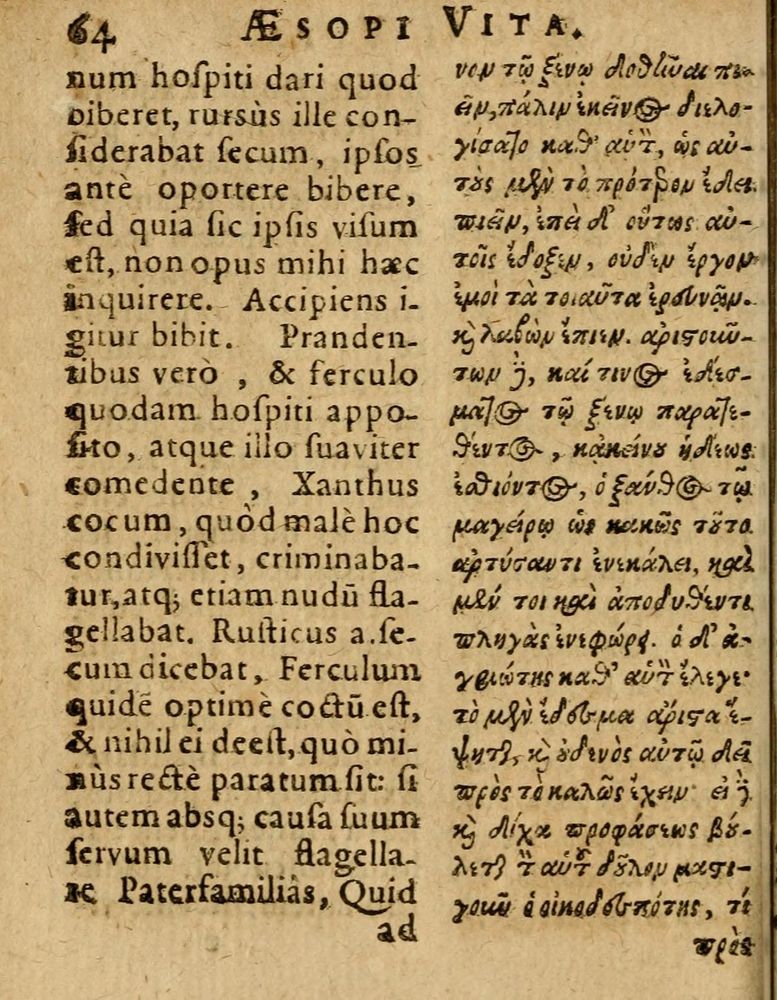 64 ÆSOPI VITA.
num hoſpiti dari quod
biberet, rursùs ille con-
ſiderabat ſecum, ipſos
antè oportere bibere,
ſed quia ſic ipſis viſum
eſt, non opus mihi hæc
inquirere. Accipiens i-
gitur bibit. Pranden-
tibus verò, & ferculo
quodam hoſpiti appo-
ſito, atque illo ſuaviter
comedente, Xanthus
cocum, quòd malè hoc
condiviſſet, criminaba-
tur, atq; etiam nudū fla-
gellabat. Ruſticus a. ſe-
cum dicebat, Ferculum
quidē optimè coctū eſt,
& nihil ei deeſt, quò mi-
nùs rectè paratum ſit: ſi
autem absq; cauſa ſuum
ſervum velit flagella-
re Paterfamiliâs, Quid
ad
νον τῷ ξένῳ δοθῆναι πι-
εῖν, πάλιν ἐκεῖνος διελο-
γίσατο καθ' αὑτὸν, ὡς αὐ-
τοὺς μὲν τὸ πρότερον ἔδει
πιεῖν, ἐπεὶ δ' οὕτως αὐ-
τοῖς ἔδοξεν, οὐδὲν ἔργον
ἐμοὶ τὰ τοιαῦτα ἐρευνᾷν.
καὶ λαβὼν ἔπιεν. ἀριστών-
των δὲ, καί τινος ἐδέσ-
ματος τῷ ξένῳ παρατε-
θέντος, κᾀκείνου ἡδέως
ἐσθίοντος, ὁ ξάνθος τῷ
μαγείρῳ ὡς κακῶς τοῦτο
ἀρτύσαντι ἐνεκάλει, καὶ
μέν τοι καὶ ἀποδυθέντι
πληγὰς ἐνεφόρει. ὁ δ' ἀ-
γριώτης καθ' αὑτὸν ἔλεγε·
τὸ μὲν ἔδεσμα ἄριστα ἕ-
ψηται, καὶ οὐδενὸς αὐτῷ δεῖ
πρὸς τὸ καλῶς ἔχειν· εἰ δὲ
καὶ δίχα προφάσεως βού-
λεται τὸν αὑτοῦ δοῦλον μαστι-
γοῦν ὁ οἰκοδεσπότης, τί
πρὸς